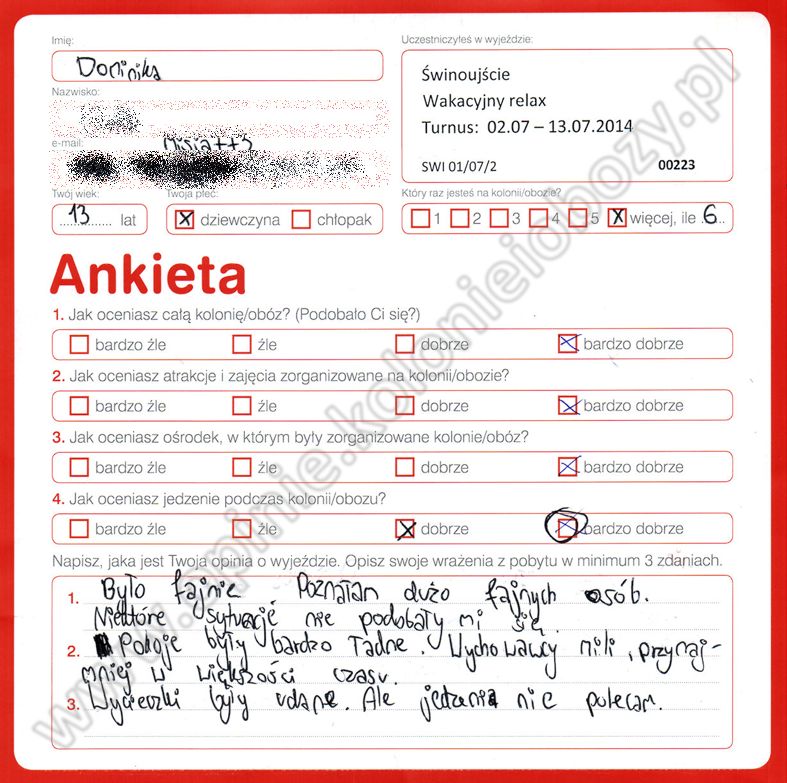 Imię:
Dominika
Uczestniczyłeś w wyjeździe:
Świnoujście
Wakacyjny relax
Turnus: 02.07 – 13.07.2014
SWI 01/07/2 00223
Nazwisko:
e-mail:
misia++3
Twój wiek:
13 lat
Twoja płeć:
X dziewczyna chłopak
Który raz jesteś na kolonii/obozie?
1 2 3 4 5 X więcej, ile 6
Ankieta
1. Jak oceniasz całą kolonię/obóz? (Podobało Ci się?)
bardzo źle źle dobrze X bardzo dobrze
2. Jak oceniasz atrakcje i zajęcia zorganizowane na kolonii/obozie?
bardzo źle źle dobrze X bardzo dobrze
3. Jak oceniasz ośrodek, w którym były zorganizowane kolonie/obóz?
bardzo źle źle dobrze X bardzo dobrze
4. Jak oceniasz jedzenie podczas kolonii/obozu?
bardzo źle źle X dobrze X bardzo dobrze
Napisz, jaka jest Twoja opinia o wyjeździe. Opisz swoje wrażenia z pobytu w minimum 3 zdaniach.
1. Było fajnie Poznałam dużo fajnych osób.
Niektóre sytuacje nie podobały mi się
2. Pokoje były bardzo ładne. Wychowawcy mili, przynaj-
mniej w większości czasu.
3. Wycieczki były udane. Ale jedzenia nie polecam.
www.opinie.kolonieiobozy.pl